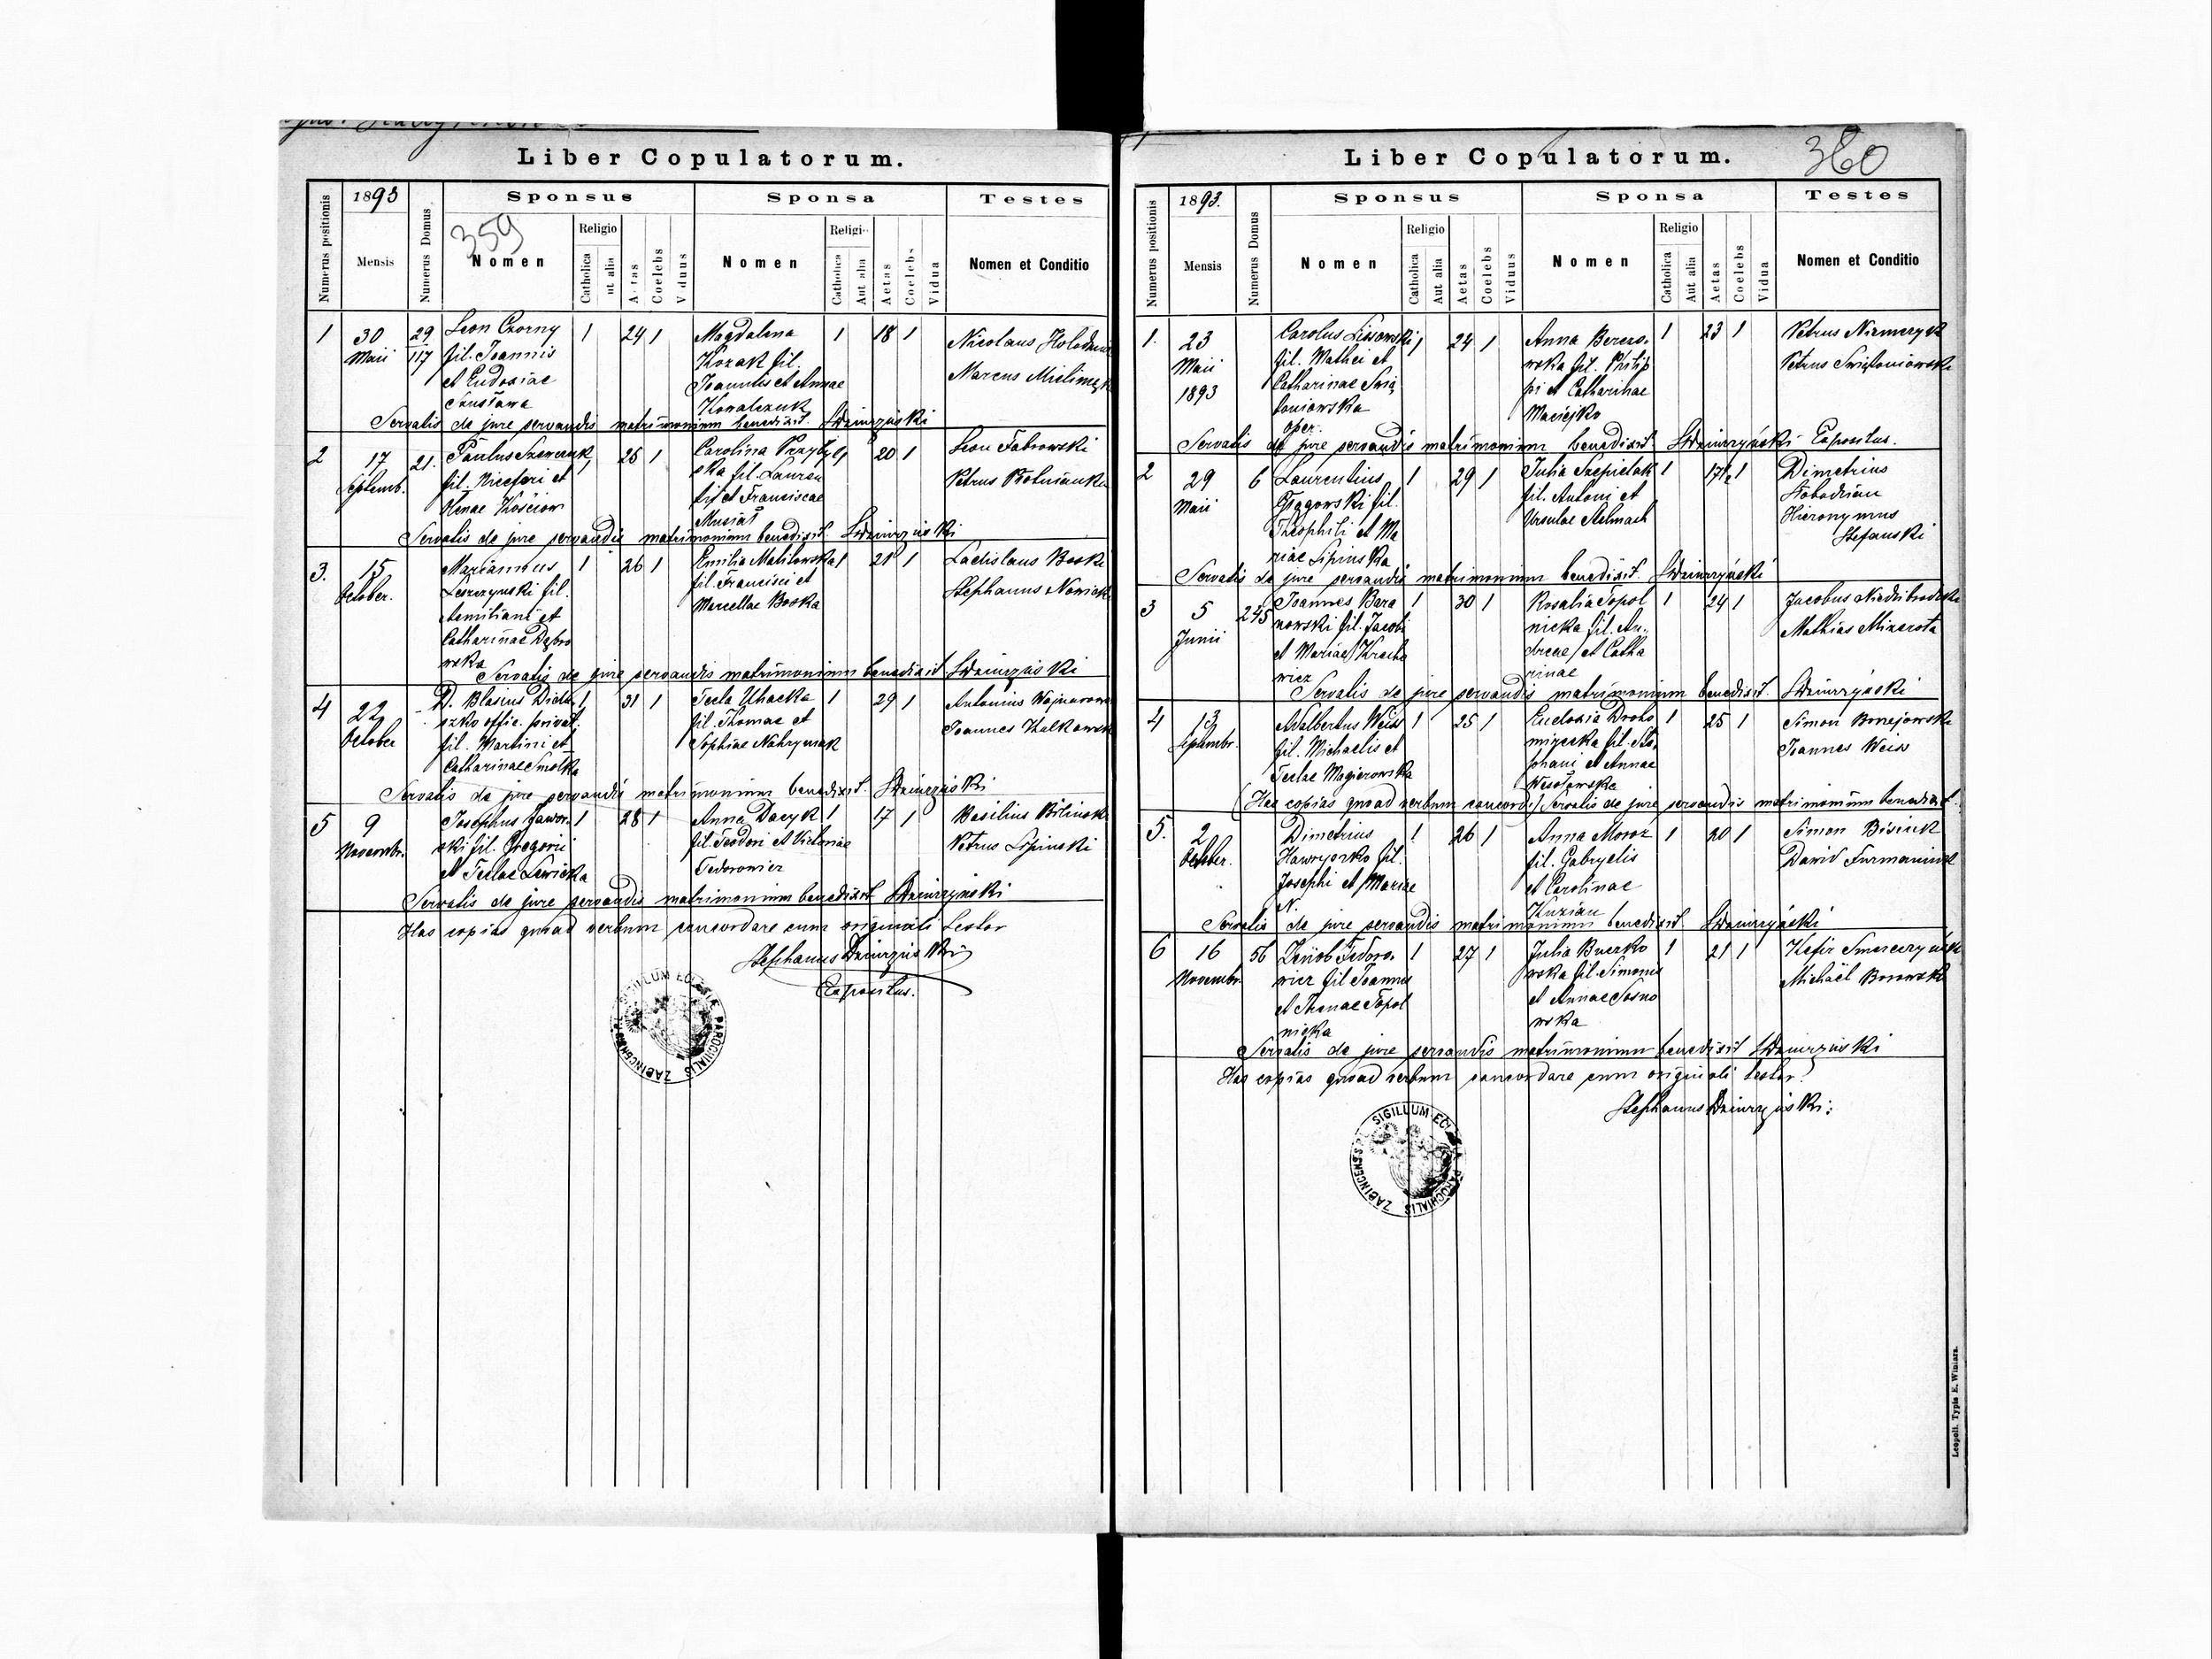 Liber Copulatorum.
Numerus positionis
1893
Mensis
Numerus Domus
Sponsus
359
Nomen
Religio
Catholica
ut alia
Aetas
Coelebs
Viduus
Sponsa
Nomen
Religio
Catholica
Aut alia
Aetas
Coelebs
Vidua
Testes
Nomen et Conditio
1
30
Maii
29
117
Leon Czorny
fil. Joannis
et Eudoxiae
1
24 1
Magdalena
Kozak fil.
Joannis et Annae
Kowalczuk
1
18 1
Nicolaus
Marcus
Servatis de jure servandis matrimonium benedixit SDziurzyński
2
17
Septemb.
21.
Paulus Szewczuk
fil. Nicefori et
Kościow
1
25 1
Carolina Przybyl
ska fil. Lauren
tii et Franciscae
Musiał
1
20 1
Leon Dabrowski
Petrus
Servatis de jure servandis matrimonium benedixit SDziurzyński
3.
15
October.
Mariannus
Leszczynski fil.
Aemiliani et
Catharinae Dąbro
wska
1
26 1
Emilia
fil. Francisci et
Marcellae Boska
1
21 1
Ladislaus Boski
Stephanus Nowick
Servatis de jure servandis matrimonium benedixit SDziurzyński
4
22
October
D. Blasius Didu
szko offic. privat.
fil. Martini et
Catharinae Smolka
1
31 1
Tecla Uhacka
fil. Thomae et
Sophiae Nahryniak
1
29 1
Antonius
Joannes
Servatis de jure servandis matrimonium benedixit SDziurzyński
5
9
Novembr.
Josephus Jawor
ski fil. Gregorii
et Teclae Lewicka
1
28 1
Anna Dacyk
fil. Teodori et Victoriae
Fedorowicz
1
17 1
Basilius Bilinsk
Petrus Lipinski
Servatis de jure servandis matrimonium benedixit SDziurzyński
Has copias quoad verbum concordare cum originali testor
Stephanus Dziurzyński
Expositus.
SIGILLUM ECCLESIAE PAROCHIALIS ZABINCENSIS
Liber Copulatorum.
360
Numerus positionis
1893.
Mensis
Numerus Domus
Sponsus
Nomen
Religio
Catholica
Aut alia
Aetas
Coelebs
Viduus
Sponsa
Nomen
Religio
Catholica
Aut alia
Aetas
Coelebs
Vidua
Testes
Nomen et Conditio
1.
23
Maii
1893
Carolus Lissowski
fil. Mathei et
Catharinae Swią
toniowska
oper.
1
24 1
Anna Berezo
wska fil. Philip
pi et Catharinae
Maciejko
1
23 1
Petrus Niemczyk
Petrus Swiątoniowski
Servatis de jure servandis matrimonium benedixit SDziurzyński Expositus.
2
29
Maii
6
Laurentius
fil.
Theophili et Ma
riae Lipinska
1
29 1
Julia Szepielak
fil. Antoni et
Ursulae Stelmach
1
17½ 1
Dimetrius
Hieronymus
Stefanski
Servatis de jure servandis matrimonium benedixit SDziurzyński
3
5
Junii
245
Joannes Bara
nowski fil. Jacobi
et Mariae
1
30 1
Rosalia Topol
nicka fil. An
dreae et Catha
rinae
1
24 1
Jacobus
Mathias Mizerota
Servatis de jure servandis matrimonium benedixit. SDziurzyński
4
13
Septembr.
Adalbertus Weiss
fil. Michaelis et
Teclae Magierowska
1
25 1
Eudoxia Droho
mirecka fil. Ste
phani et Annae
Wesołowska
1
25 1
Simon
Joannes Weiss
(Has copias quoad verbum concord) Servatis de jure servandis matrimonium benedixit
5.
2
October.
Dimetrius
Hawryszko fil.
Josephi et Mariae
N.
1
26 1
Anna Moroz
fil. Gabryelis
et Carolinae
Kuzian
1
20 1
Simon Bisiuk
Dawid Furmaniuk
Servatis de jure servandis matrimonium benedixit. SDziurzyński
6
16
Novembr.
56
Zenob Fedoro
wicz fil Joannis
et Topol
nicka
1
27 1
Julia Buczko
wska fil. Simonis
et Annae Sosno
wska
1
21 1
Michaël Borowski
Servatis de jure servandis matrimonium benedixit SDziurzyński
Has copias quoad verbum concordare cum originali testor.
Stephanus Dziurzyński
SIGILLUM ECCLESIAE PAROCHIALIS ZABINCENSIS
Leopoli. Typis E. Winiarz.